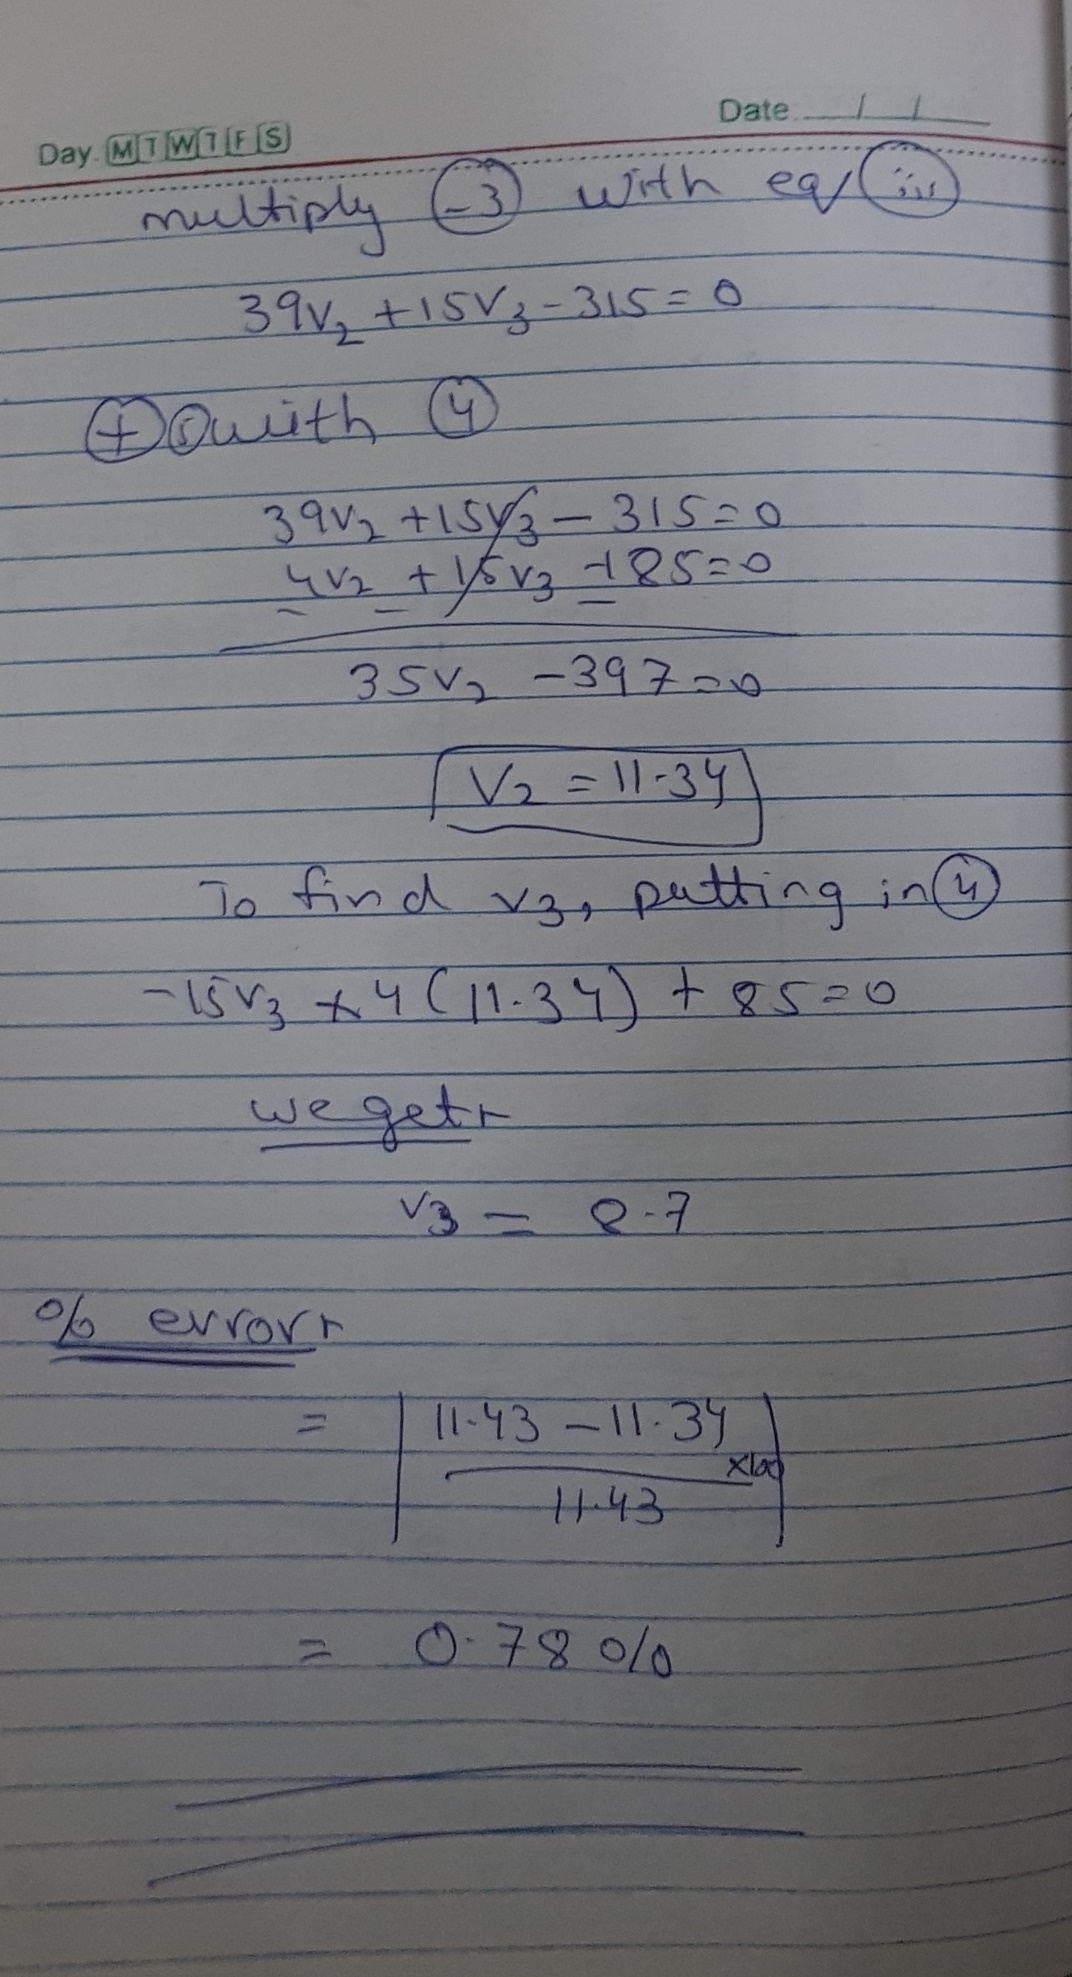 Date / /
Day. M T W T F S
multiply (-3) with eq (iii)
39V₂ + 15V₃ - 315 = 0
(+) (5) with (4)
39V₂ + 15V₃ - 315 = 0
4V₂ + 15V₃ + 85 = 0
35V₂ - 397 = 0
V₂ = 11.34
To find V₃, putting in (4)
-15V₃ + 4(11.34) + 85 = 0
we get
V₃ = 8.7
% error
= | 11.43 - 11.34
x100
11.43 |
= 0.78 %